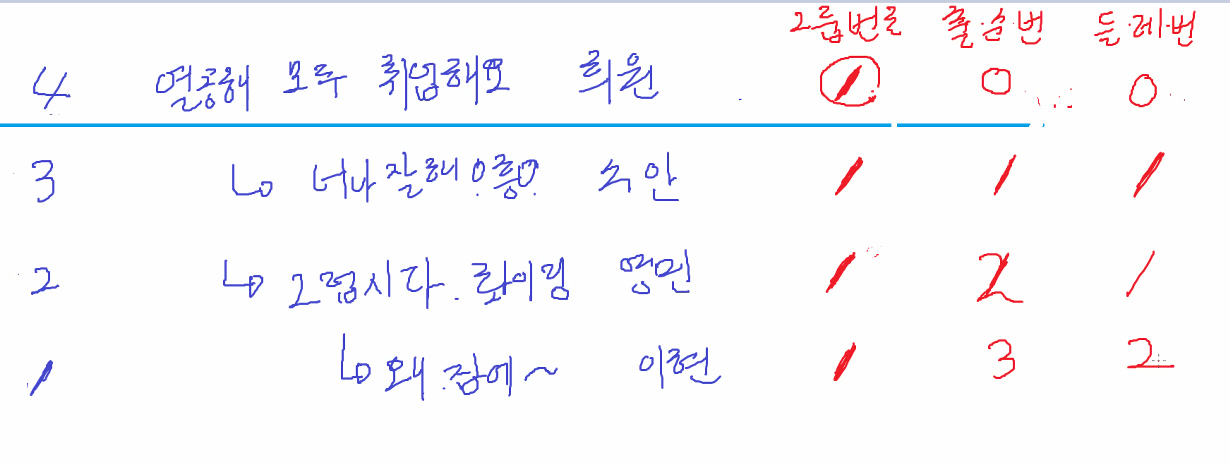 그룹번호 출순번 들여번
4 열공해 모두 취업해요 희원 1 0 0
3 ↳ 너나 잘해 으흥 수안 1 1 1
2 ↳ 그럽시다. 화이링 영민 1 2 1
1 ↳ 왜. 집에~ 이현 1 3 2